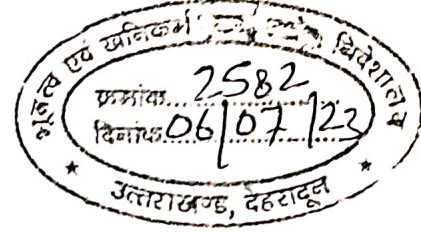 भूतत्व एवं खनिकर्म निदेशालय
क्रमांक.....2582
दिनांक.06/07/23
उत्तराखण्ड, देहरादून